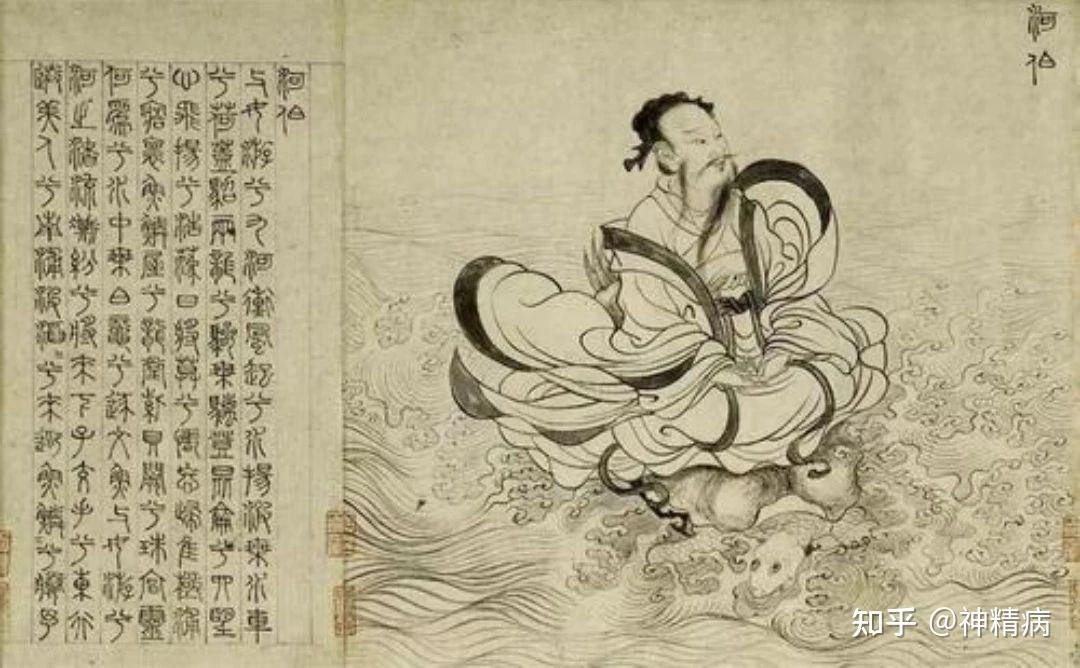 河伯
河伯
與女游兮九河衝風起兮水揚波乘水車
兮荷蓋駕兩龍兮驂乘螭登昆侖兮四望
心飛揚兮浩蕩日將莫兮悵忘歸惟極浦
兮寤懷魚鱗屋兮龍堂紫貝闕兮珠宮靈
何爲兮水中乘白黿兮逐文魚與女游兮
河之渚流澌紛兮將來下子交手兮東行
送美人兮南浦波滔〻兮來迎魚鱗兮媵予
知乎 @神精病